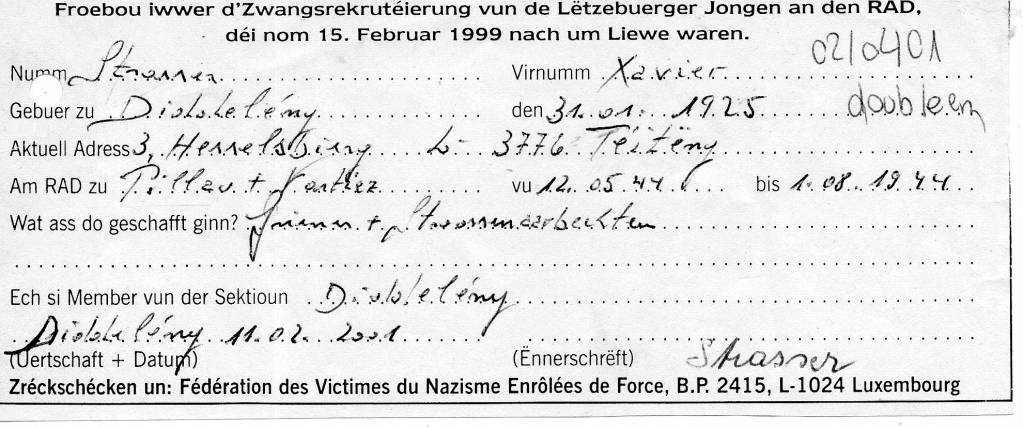 Froebou iwwer d'Zwangsrekrutéierung vun de Lëtzebuerger Jongen an den RAD,
déi nom 15. Februar 1999 nach um Liewe waren.
02/0401
Numm Strasser Virnumm Xavier
Gebuer zu Diddelény den 31.01. 1925 doubleen
Aktuell Adress 3, Hesselsbierg L- 3776 Téiténg
Am RAD zu Pillau + vu 12.05.44 bis 1.08.1944
Wat ass do geschafft ginn? + Stroossenaarbechten
Ech si Member vun der Sektioun Diddelény
Diddelény 11.02. 2001
(Uertschaft + Datum) (Ënnerschrëft) Strasser
Zréckschécken un: Fédération des Victimes du Nazisme Enrôlées de Force, B.P. 2415, L-1024 Luxembourg